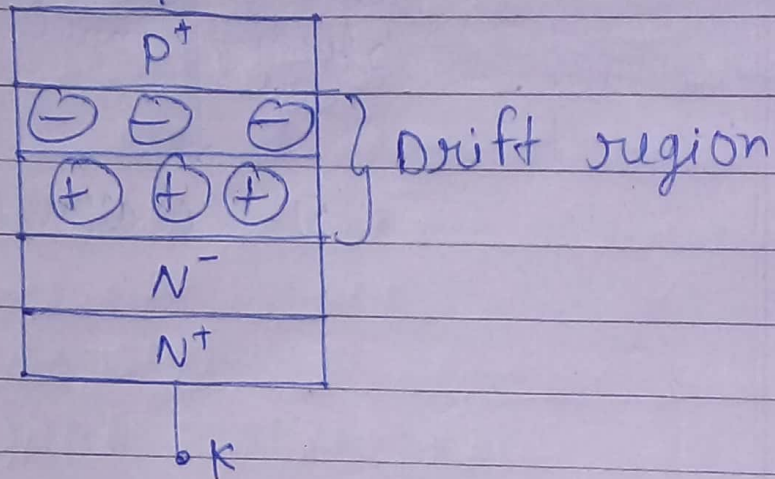 P⁺
⊖ ⊖ ⊖
Drift region
⊕ ⊕ ⊕
N⁻
N⁺
K